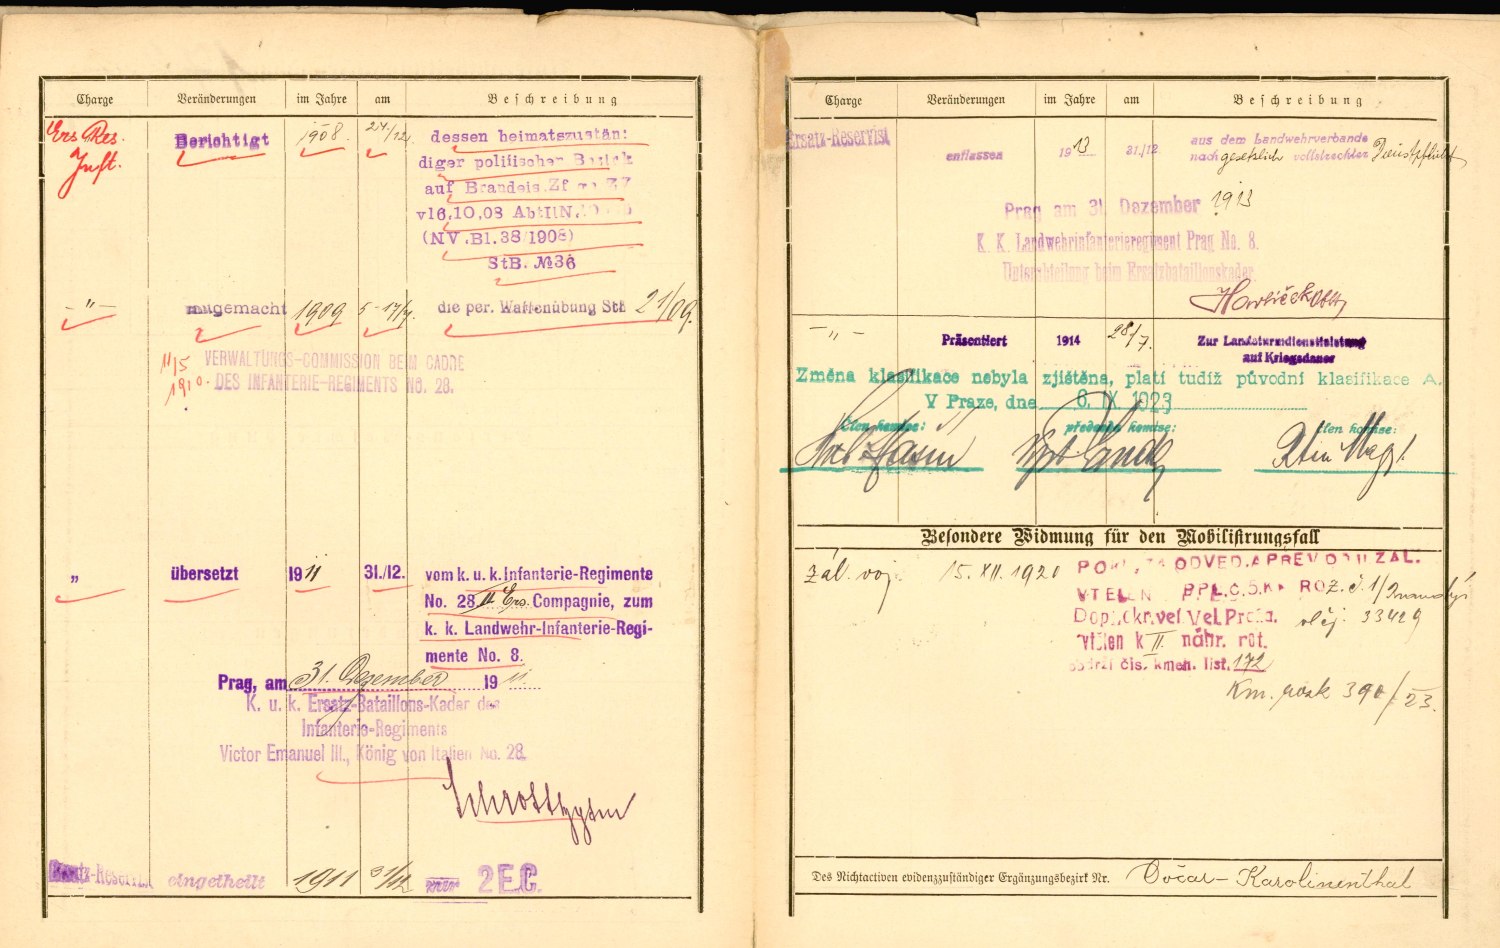 Charge Veränderungen im Jahre am Beschreibung
Ers. Res. Berichtigt 1908. 24./12. dessen heimatszustän:
Inft. diger politischer Bezirk
auf Brandeis
v16.10.08 Abt.IIN.
(N.V.Bl.38/1908)
StB. №36
-"- mitgemacht 1909 5-17/7. die per. Waffenübung Stb 21/09.
11/5 VERWALTUNGS-COMMISSION BEIM CADRE
1910. DES INFANTERIE-REGIMENTS No. 28.
" übersetzt 1911 31./12. vom k. u. k. Infanterie-Regimente
No. 28 II Ers. Compagnie, zum
k. k. Landwehr-Infanterie-Regi-
mente No. 8.
Prag, am 31. Dezember 1911.
K. u. k. Ersatz-Bataillons-Kader des
Infanterie-Regiments
Victor Emanuel III., König von Italien No. 28.
Ersatz-Reservist eingetheilt 1911 31/12 zur 2 E.C.
Charge Veränderungen im Jahre am Beschreibung
Ersatz-Reservist entlassen 1913 31./12 aus dem Landwehrverbande
nach gesetzlich vollstreckter Dienstpflicht
Prag am 31. Dezember 1913
K. K. Landwehrinfanterieregiment Prag No. 8.
Unterabteilung beim Ersatzbataillonskader
Havlíček Oblt
-"- Präsentiert 1914 28/7. Zur Landsturmdienstleistung
auf Kriegsdauer
Změna klasifikace nebyla zjištěna, platí tudíž původní klasifikace A.
V Praze, dne 6. IX 1923
Člen komise: předseda komise: člen komise:
Besondere Widmung für den Mobilisirungsfall
zál. voj. 15. XII. 1920 ODVED. A PREV. DO ZAL.
VTELEN P.PL.Č.5. ROZ. č. 1/
Doplň.okr.vel. Vel. Praha. 33429
vtělen k II. náhr. rot.
obdržel čís. kmen. list. 172
Km. 390/23.
Des Nichtactiven evidenzzuständiger Ergänzungsbezirk Nr. Karolinenthal